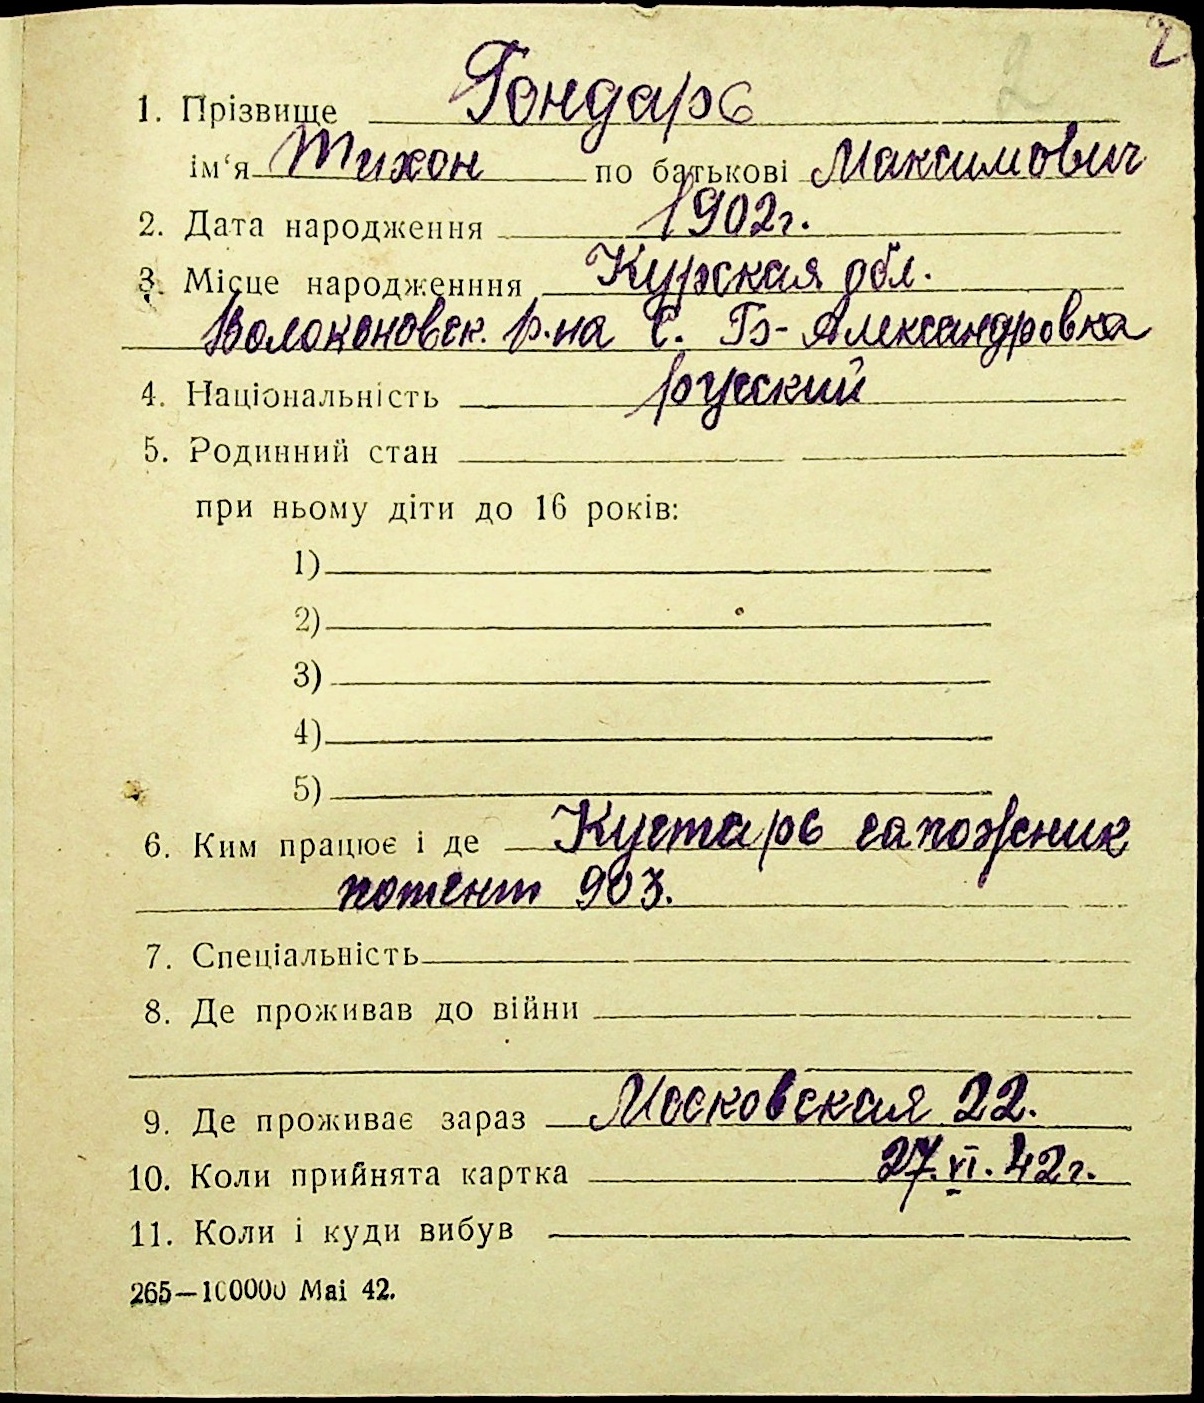 2
2
1. Прізвище Гондарь
ім‘я Тихон по батькові Максимович
2. Дата народження 1902г.
3. Місце народженння Курская обл.
Волоконовск. р-на С. Александровка
4. Національність русский
5. Родинний стан
при ньому діти до 16 років:
1)
2)
3)
4)
5)
6. Ким працює і де Кустарь сапожник
потент 903.
7. Спеціальність
8. Де проживав до війни
9. Де проживає зараз Московская 22.
10. Коли прийнята картка 27.VI.42г.
11. Коли і куди вибув
265—100000 Mai 42.